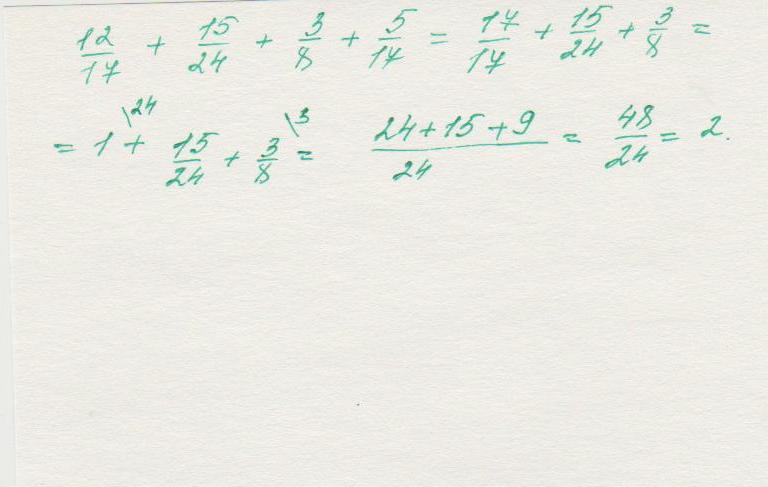 12/17 + 15/24 + 3/8 + 5/17 = 17/17 + 15/24 + 3/8 =
= 1\24 + 15/24 + 3\3/8 = 24+15+9/24 = 48/24 = 2.